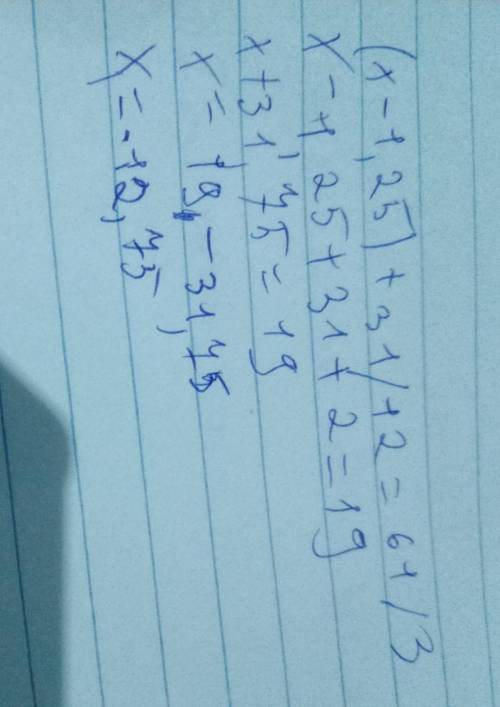 (x-1,25)+31/12=61/3
x-1,25+31+2=19
x+31,75=19
x=19,-31,75
x=-12,75